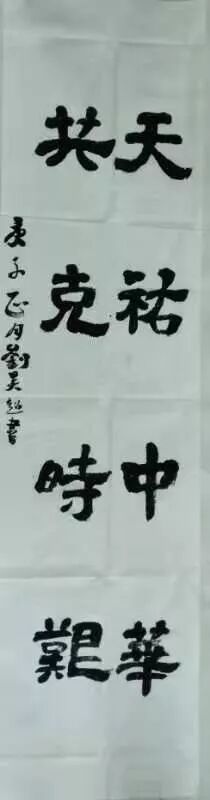 天祐中華
共克時艱
庚子正月劉昊超書